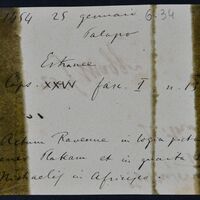 1454 25 gennaio 6.34
Palazzo
Estranee
Caps. XXIV fasc. I n. 13
Actum Ravenne in logia
Plateam et in quarta
Michaelis in Africisco